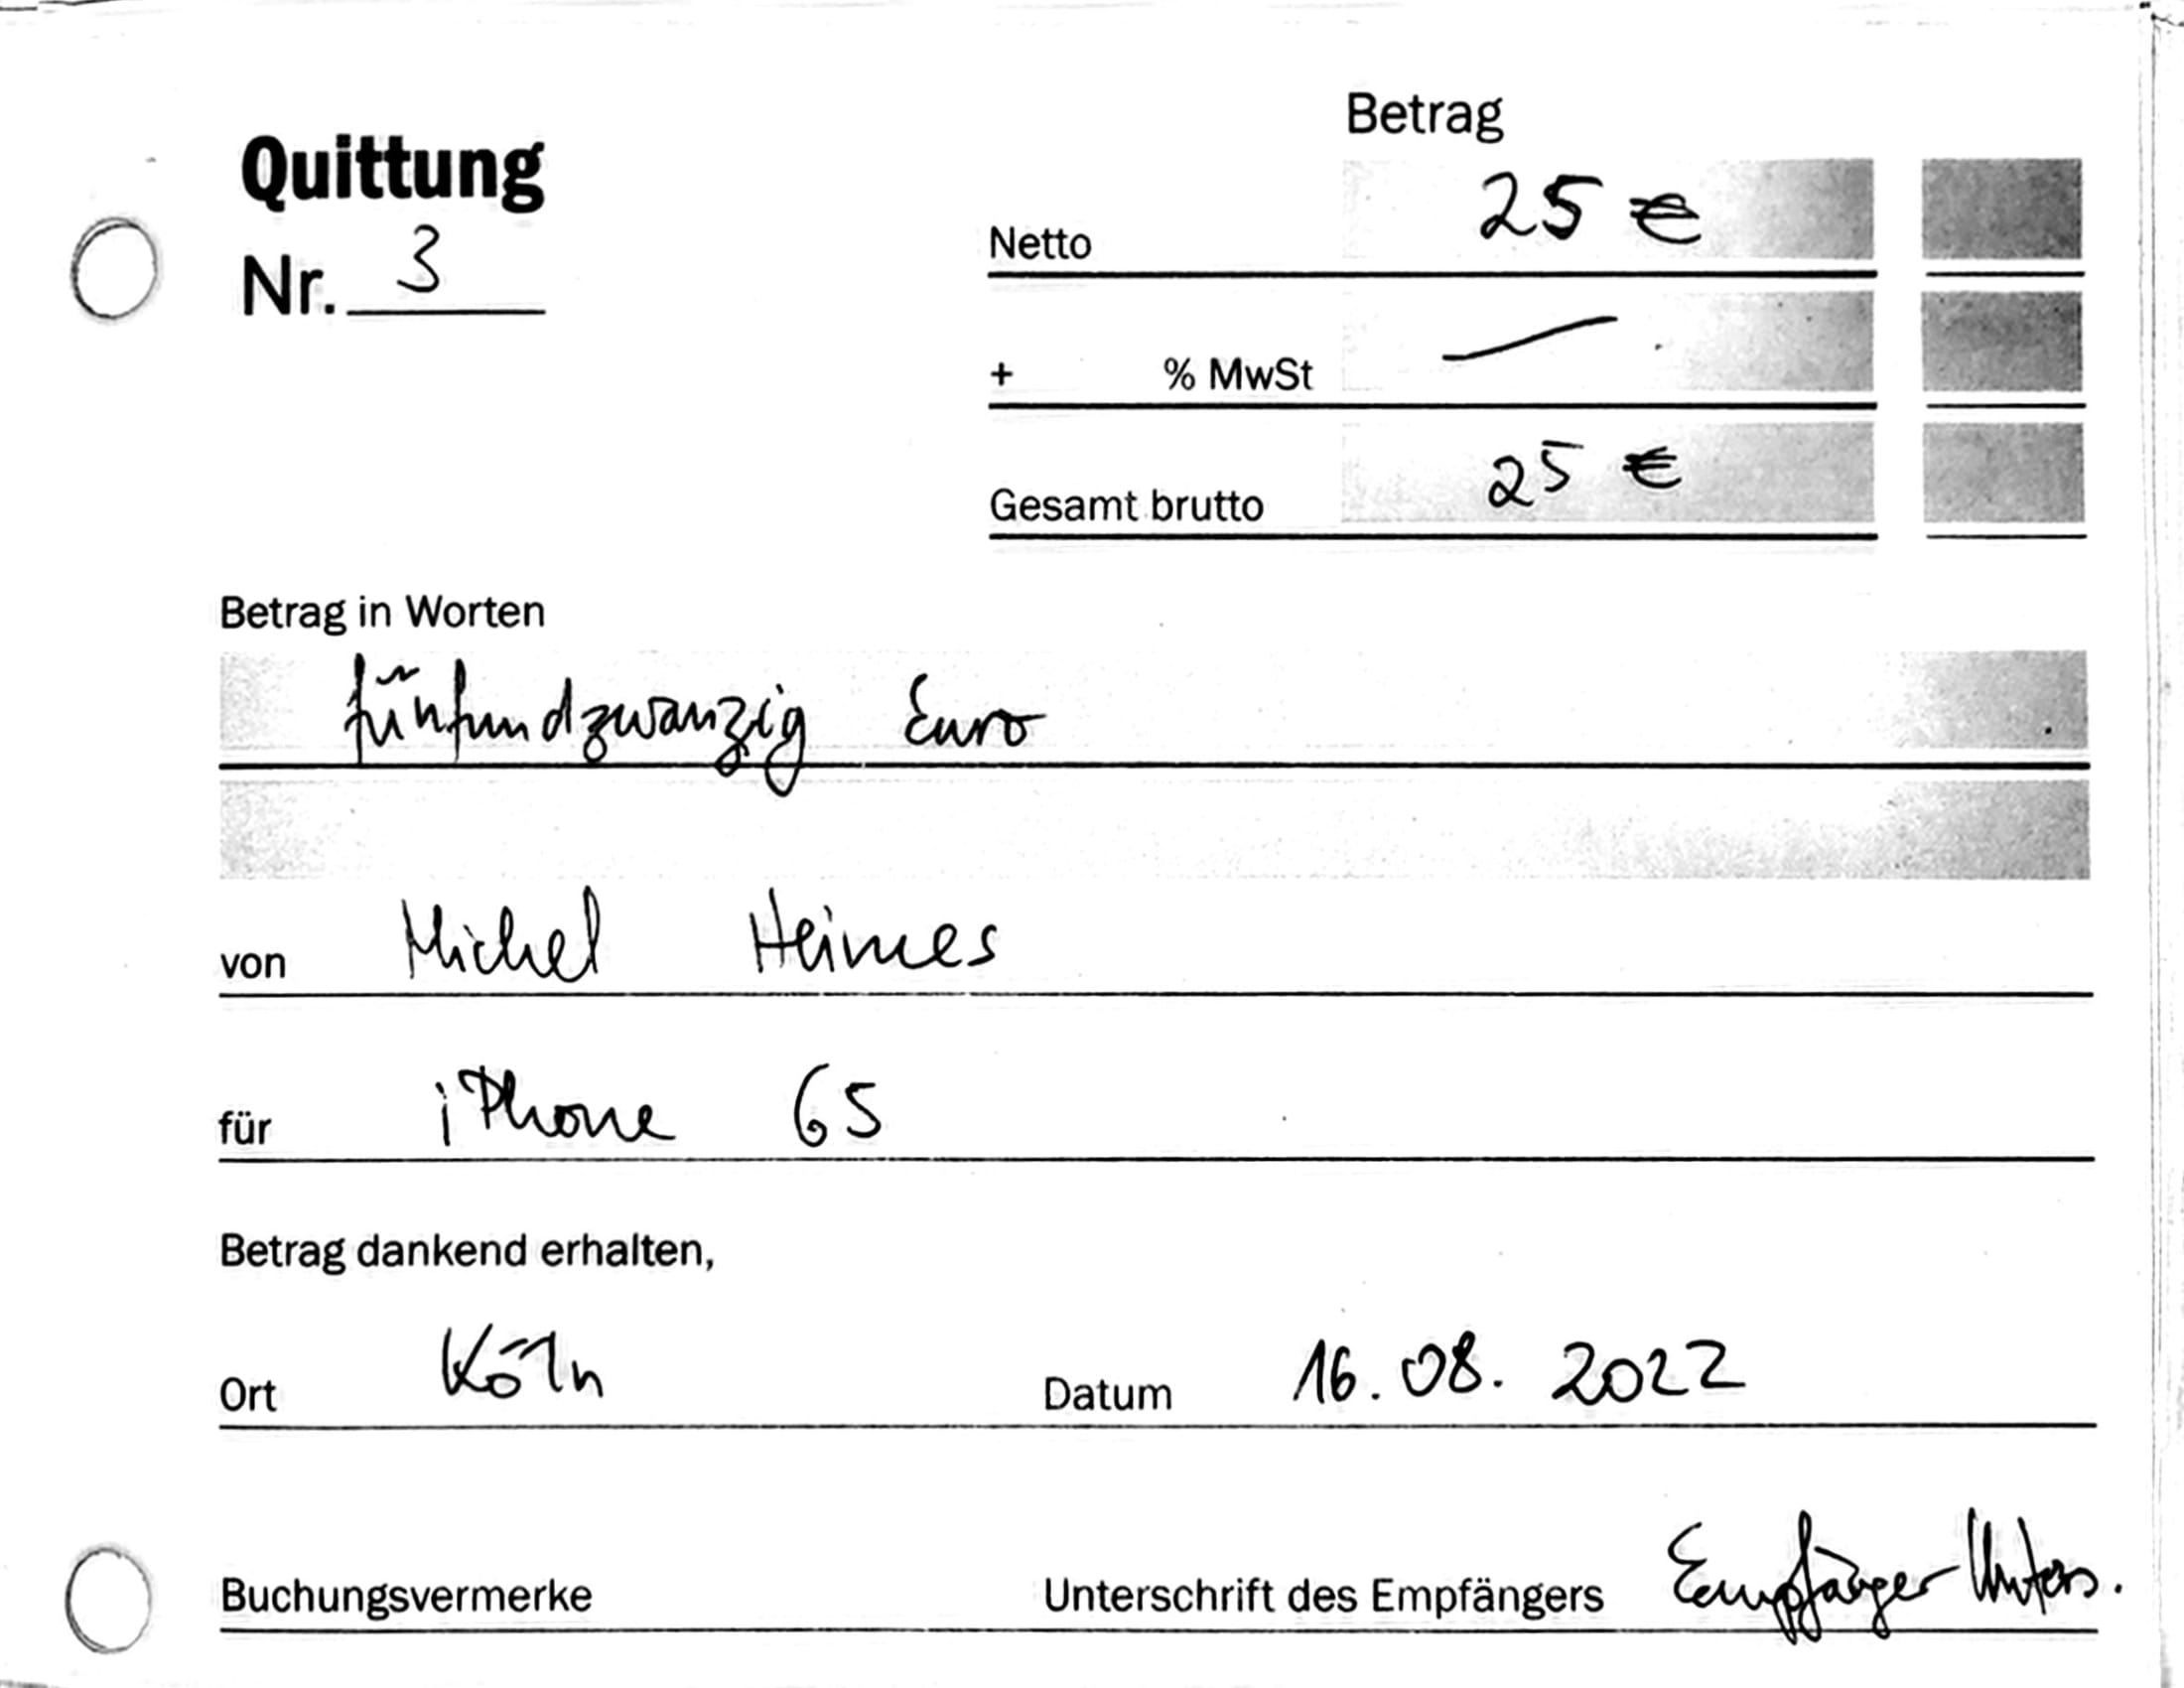 Betrag
Quittung
Nr. 3
Netto 25 €
+ % MwSt —
Gesamt brutto 25 €
Betrag in Worten
fünfundzwanzig Euro
von Michel Heimes
für iPhone 6S
Betrag dankend erhalten,
Ort Köln Datum 16.08.2022
Buchungsvermerke Unterschrift des Empfängers Empfänger Unters.